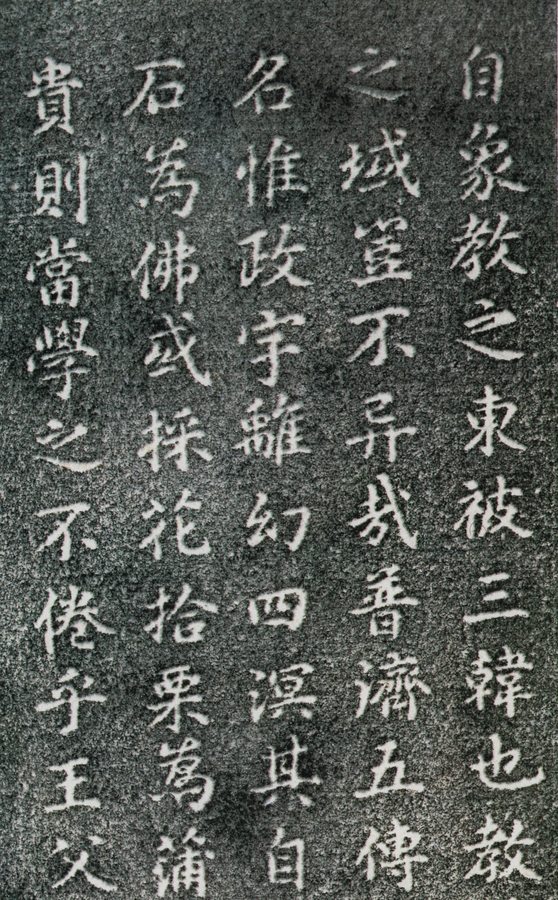 自象教之東被三韓也教
之域豈不异哉普濟五傳
名惟政字離幻四溟其自
石為佛或採花拾栗蔦蒲
貴則當學之不倦乎王父